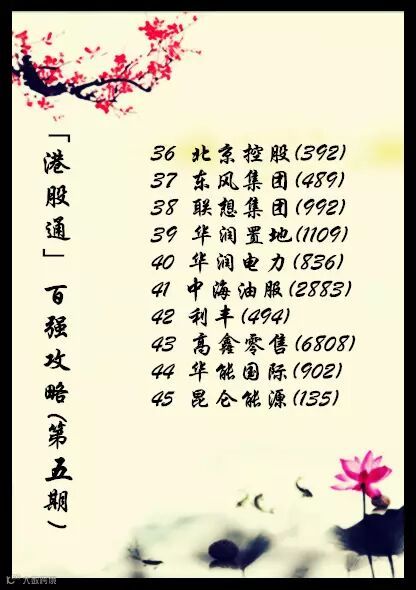 「港股通」百强攻略(第五期)
36 北京控股(392)
37 东风集团(489)
38 联想集团(992)
39 华润置地(1109)
40 华润电力(836)
41 中海油服(2883)
42 利丰(494)
43 高鑫零售(6808)
44 华能国际(902)
45 昆仑能源(135)
大数跨境